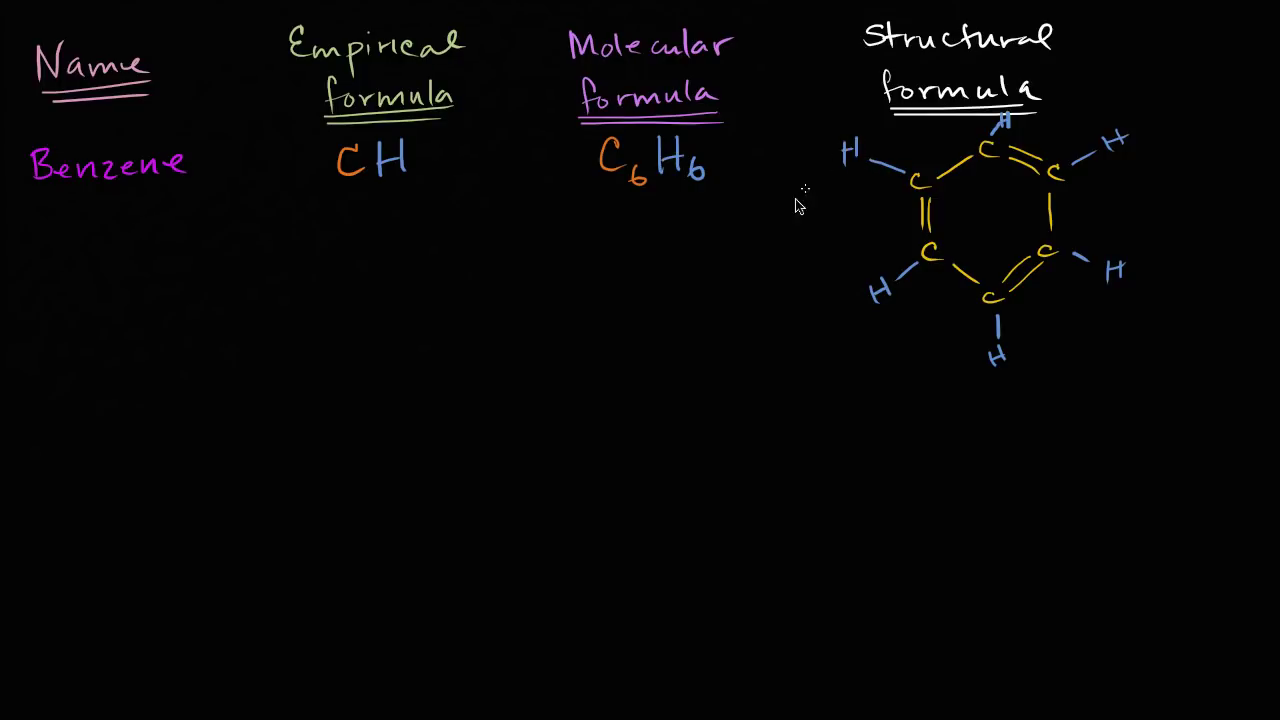 Name
Empirical
formula
Molecular
formula
Structural
formula
Benzene
CH
C6H6
H
H
H
C
C
C
C
C
C
H
H
H